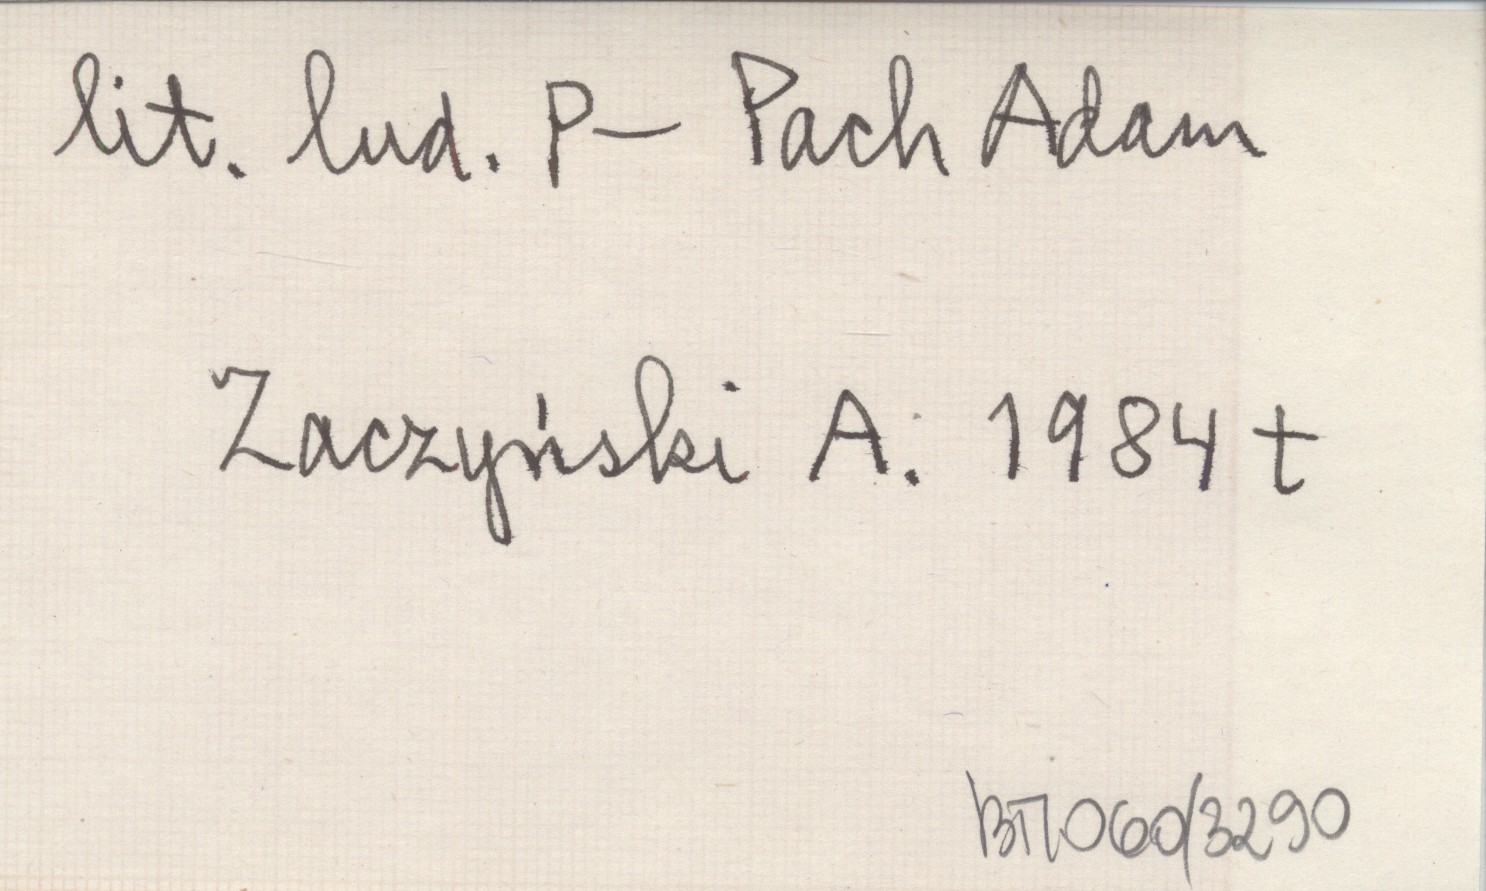 lit. lud. P – Pach Adam
Zaczyński A. 1984 t
BTN060/3290